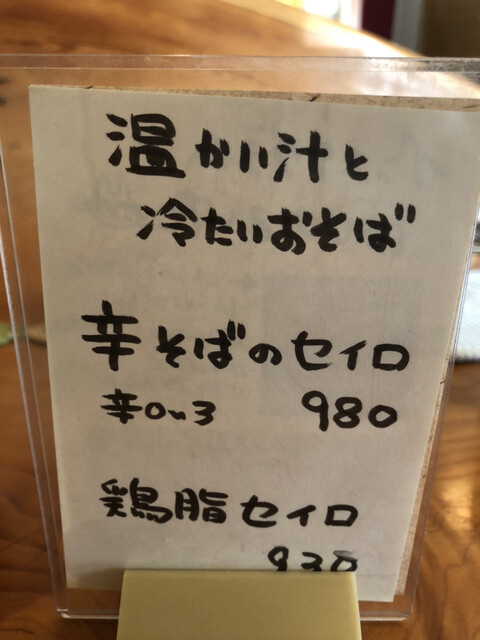 温かい汁と
冷たいおそば
辛そばのセイロ
辛0~3 980
鶏脂セイロ
930